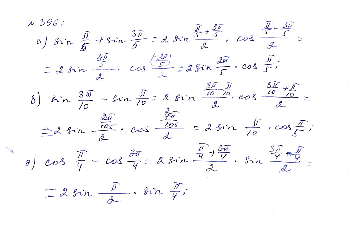 № 356:
а) sin π/5 + sin 3π/5 = 2 sin (π/5 + 3π/5)/2 · cos (π/5 − 3π/5)/2 =
= 2 sin (4π/5)/2 · cos (−2π/5)/2 = 2 sin 2π/5 · cos π/5;
б) sin 3π/10 − sin π/10 = 2 sin (3π/10 − π/10)/2 · cos (3π/10 + π/10)/2 =
= 2 sin (2π/10)/2 · cos (4π/10)/2 = 2 sin π/10 · cos π/5;
в) cos π/4 − cos 3π/4 = 2 sin (π/4 + 3π/4)/2 · sin (3π/4 − π/4)/2 =
= 2 sin π/2 · sin π/4;